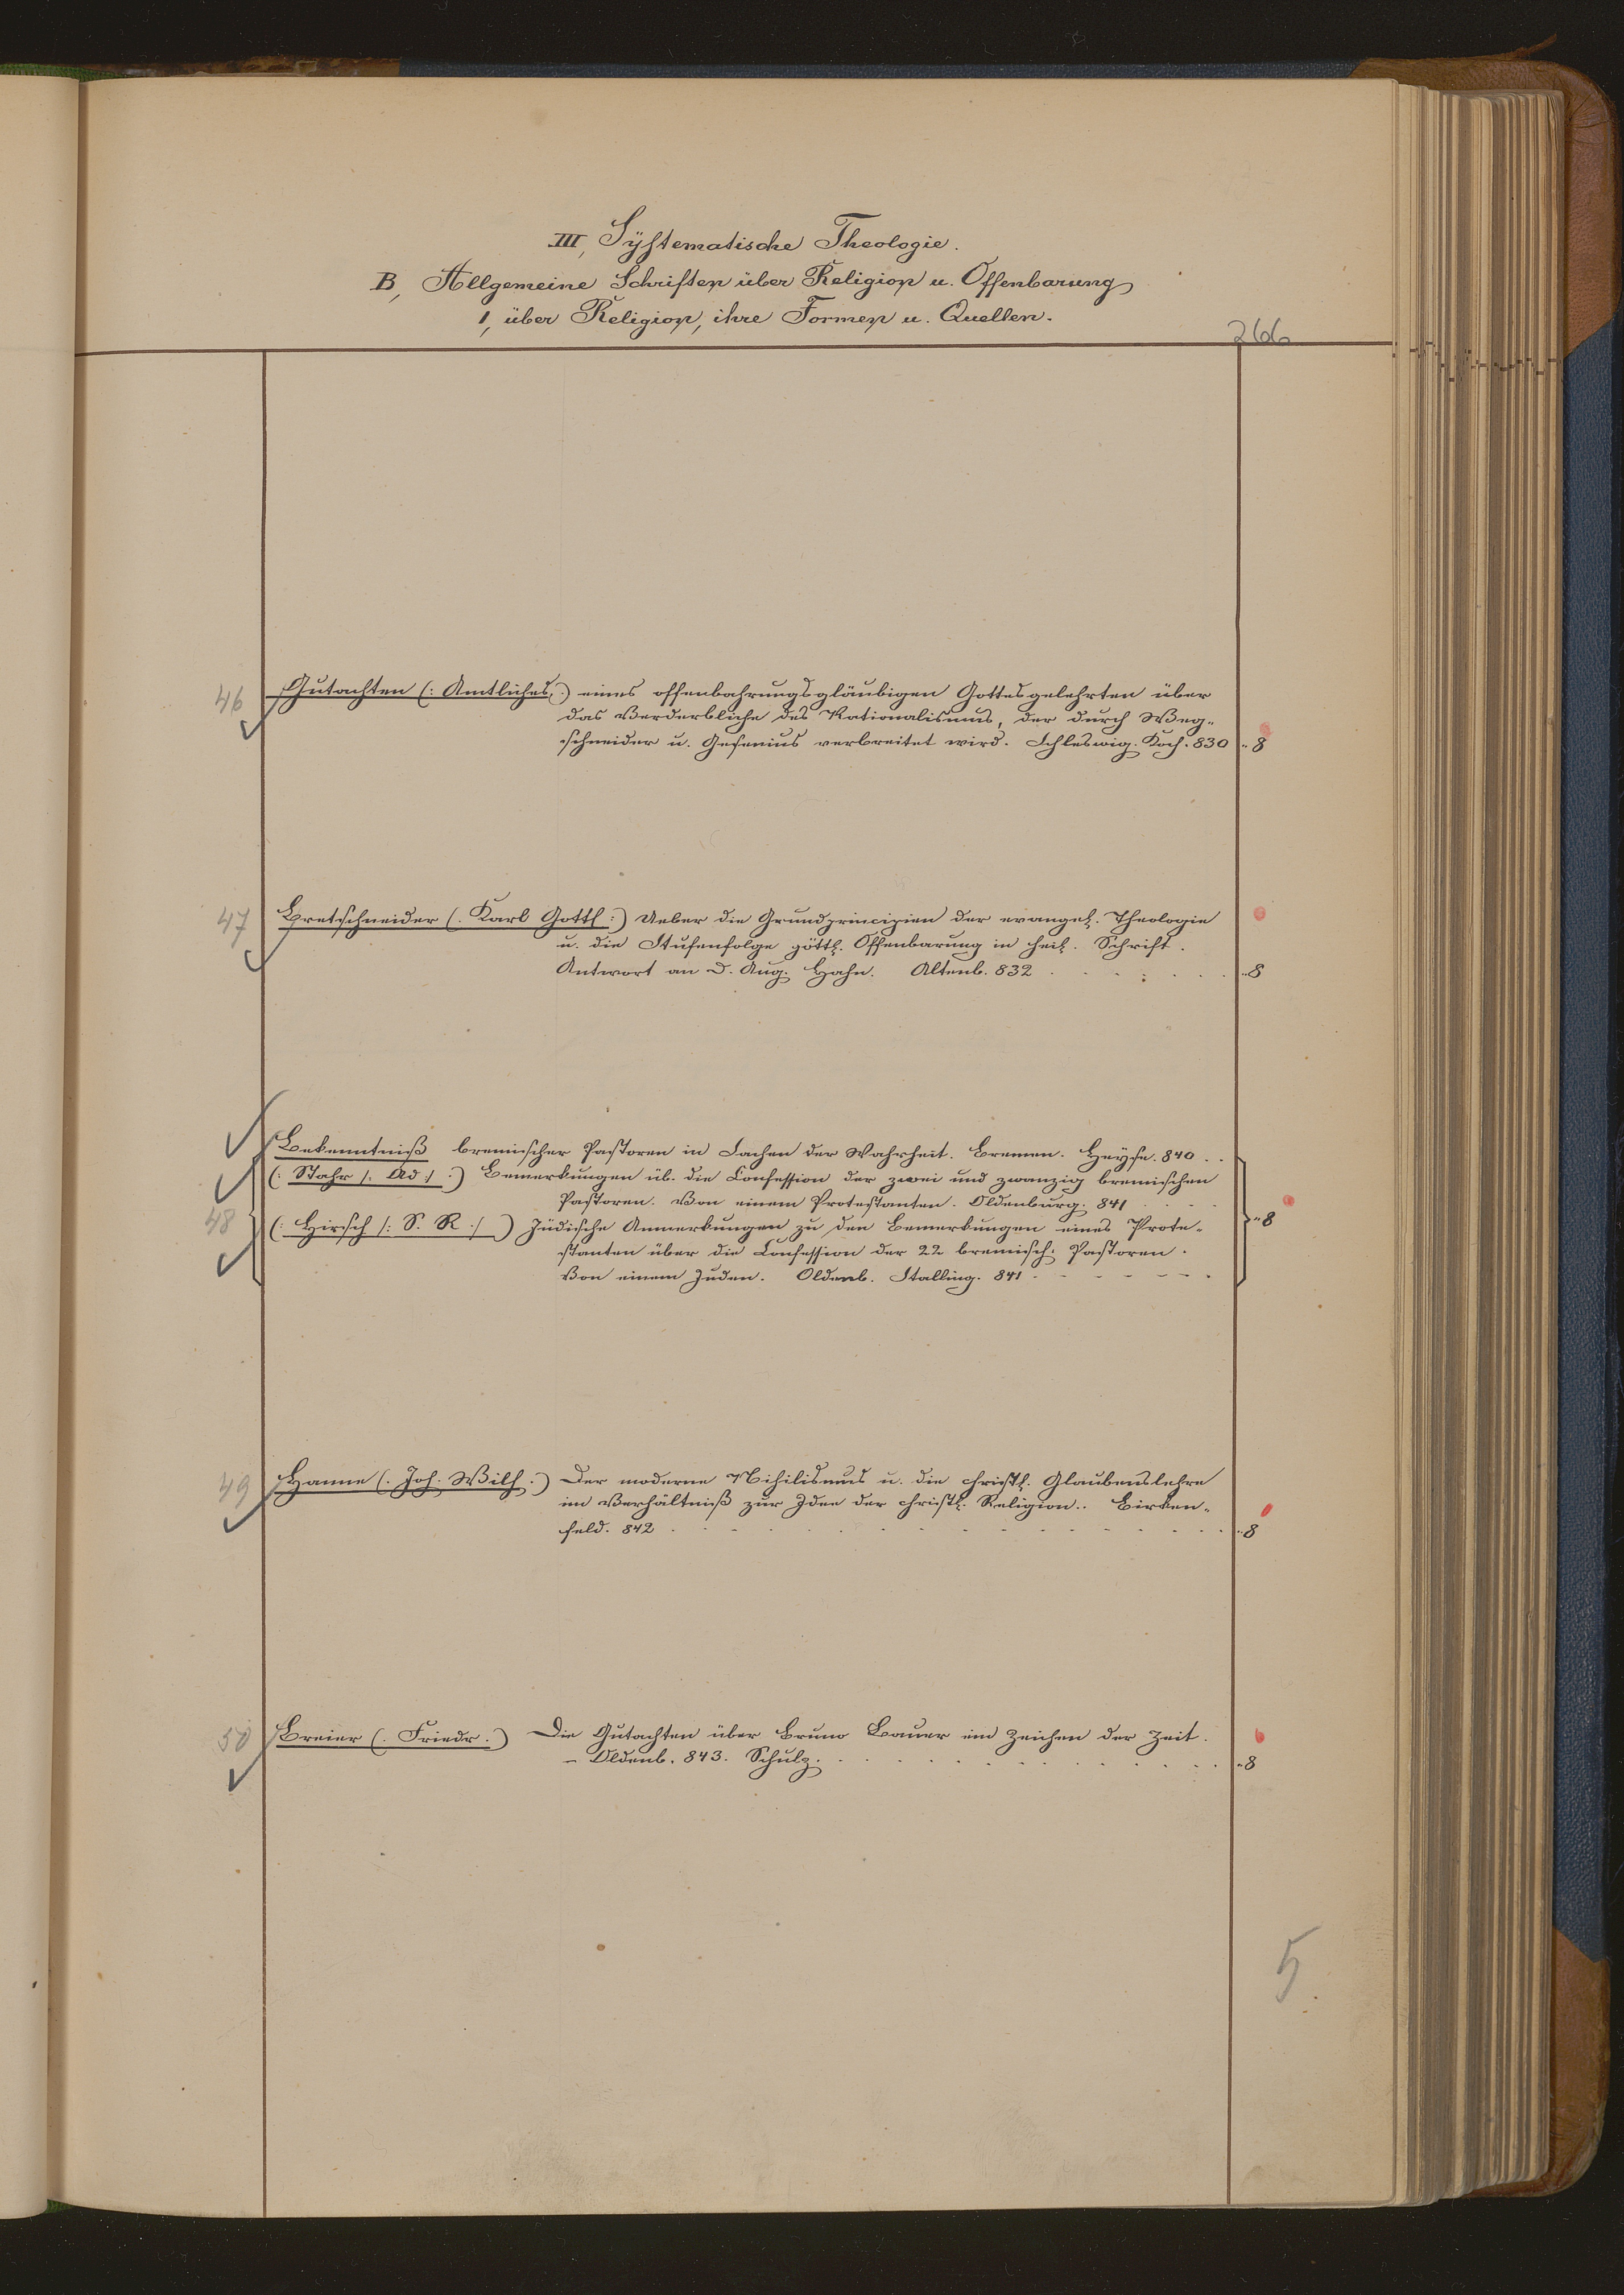 III, Systematische Theologie.
B, Allgemeine Schriften über Religion u. Offenbarung
1, über Religion, ihre Formen u. Quellen.
266
46 Gutachten (: Amtliches :) eines offenbahrungsgläubigen Gottesgelehrten über
das Verderbliche des Rationalismus, der durch Weg-
schneider u. Gesenius verbreitet wird. Schleswig. Koch. 830 .. 8
47 Bretschneider (: Karl Gottl :) Ueber die Grundprincipien der evangel. Theologie
u. die Stufenfolge göttl. Offenbarung in heil. Schrift.
Antwort an D. Aug. Hahn. Altenb. 832 . . . . . . . .. 8
Bekenntniß bremischer Pastoren in Sachen der Wahrheit. Bremen. Heyse. 840 . .
(: Stahr /: Ad :/ :) Bemerkungen üb. die Confession der zwei und zwanzig bremischen
Pastoren. Von einem Protestanten. Oldenburg. 841 . . . .
48 (: Hirsch /: S. R :/ ) Jüdische Anmerkungen zu den Bemerkungen eines Prote- .. 8
stanten über die Confession der 22 bremisch. Pastoren.
Von einem Juden. Oldenb. Stalling. 841 - - - - - - .
49 Hanne (: Joh. Wilh :) Der moderne Nihilismus u. die christl. Glaubenslehre
im Verhältniß zur Idee der christl. Religion.. Birken-
feld. 842 . . . . . . . . . . . . . . .. 8
50 Breier (: Friedr. :) Die Gutachten über Bruno Bauer ein Zeichen der Zeit.
- Oldenb. 843. Schulz. . . . . . . . . . . .. 8
5.